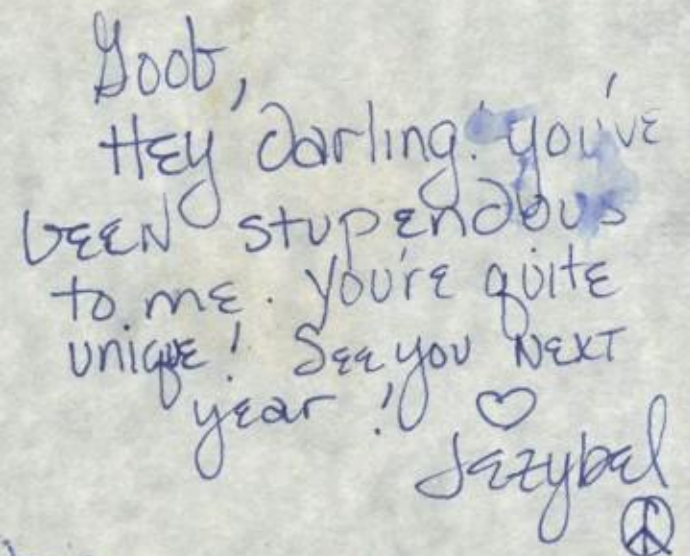 Goob,
Hey darling! you've
been stupendous
to me. You're quite
unique! See you next
year! ♡
Jezybel